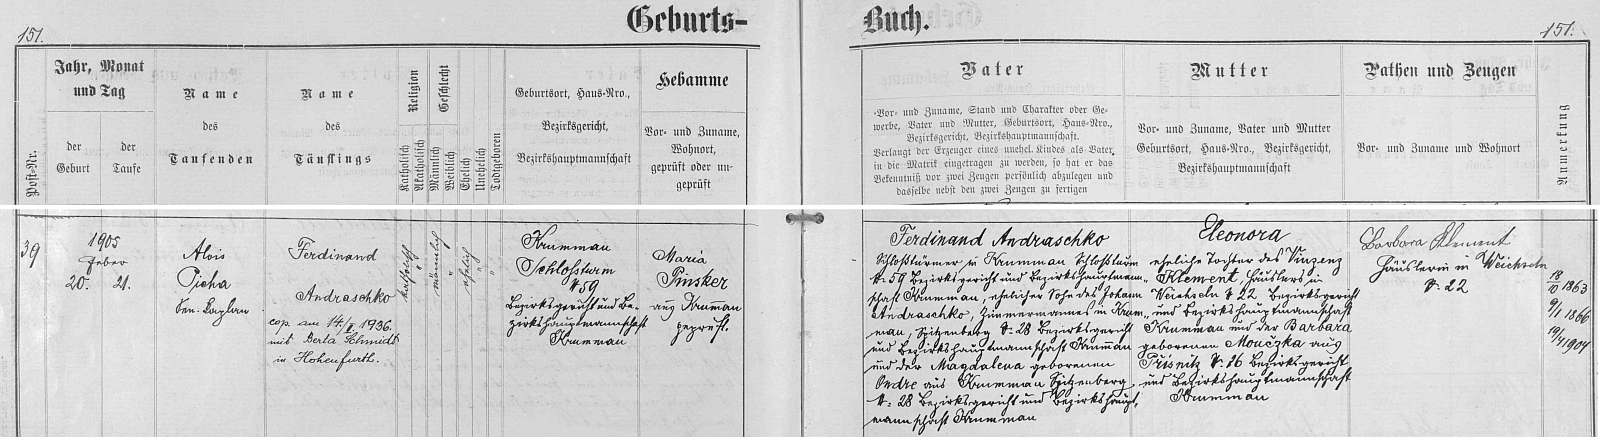 Geburts-
Buch.
151.
151.
Post-Nr.
Jahr, Monat
und Tag
der
Geburt
der
Taufe
Name
des
Taufenden
Name
des
Täuflings
Religion
Katholisch
Akatholisch
Geschlecht
Männlich
Weiblich
Ehelich
Unehelich
Todtgeboren
Geburtsort, Haus-Nro.,
Bezirksgericht,
Bezirkshauptmannschaft
Hebamme
Vor- und Zuname,
Wohnort,
geprüft oder un-
geprüft
Vater
Vor- und Zuname, Stand und Charakter oder Ge-
werbe, Vater und Mutter, Geburtsort, Haus-Nro.,
Bezirksgericht, Bezirkshauptmannschaft.
Verlangt der Erzeuger eines unehel. Kindes als Vater,
in die Matrik eingetragen zu werden, so hat er das
Bekenntniß vor zwei Zeugen persönlich abzulegen und
dasselbe nebst den zwei Zeugen zu fertigen
Mutter
Vor- und Zuname, Vater und Mutter
Geburtsort, Haus-Nro., Bezirksgericht,
Bezirkshauptmannschaft
Pathen und Zeugen
Vor- und Zuname und Wohnort
Anmerkung
39
1905
Feber
20.
21.
Alois
Picha
Ferdinand
Andraschko
cop. am 14./II. 1936.
mit Berta Schmidt
in Hohenfurth.
katholisch
männlich
ehelich
Krummau
Schloßturm
N 59
Bezirksgericht und Be-
zirkshauptmannschaft
Krummau
Maria
Pinsker
aus Krummau
geprüft.
Ferdinand Andraschko
Schloßtürmer in Krummau Schloßturm
N. 59 Bezirksgericht und Bezirkshauptmann-
schaft Krummau, ehelicher Sohn des Johann
Andraschko, Zimmermannes in Krum-
mau, Spitzenberg N: 28 Bezirksgericht
und Bezirkshauptmannschaft Krummau
und der Magdalena geborenen
Ondre aus Krummau Spitzenberg
N: 28 Bezirksgericht und Bezirkshaupt-
mannschaft Krummau
Eleonora
eheliche Tochter des Vinzenz
Klement, Häuslers in
Weichseln N 22, Bezirksgericht
und Bezirkshauptmannschaft
Krummau und der Barbara
geborenen Mouczka aus
Prisnitz N: 16 Bezirksgericht
und Bezirkshauptmannschaft
Krummau
Barbara Klement
Häuslerin in Weichseln
N: 22
18/10 1863
9/1 1866
19/4 1904